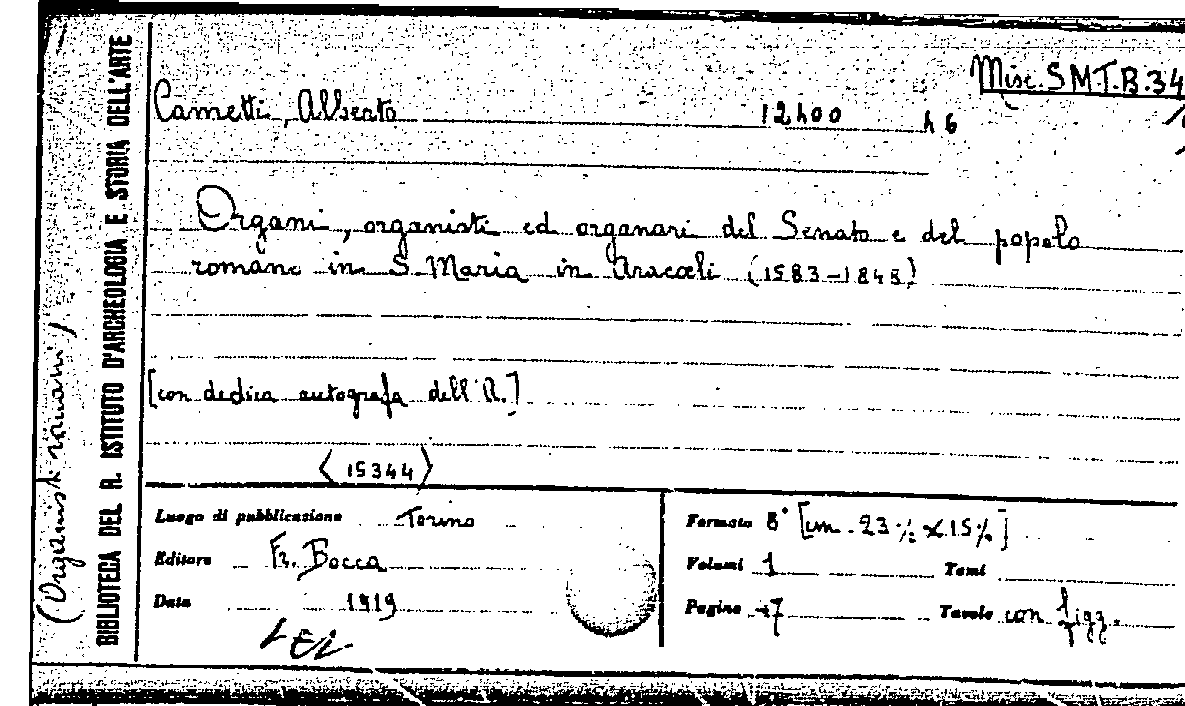 Misc. S M T. B. 34
Cametti, Alberto 12400 h 6
Organi, organisti ed organari del Senato e del popolo
romano in S. Maria in Aracoeli (1583-1848)
[con dedica autografa dell'A.]
<15344>
Luogo di pubblicazione Torino
Editore Fr. Bocca
Data 1919
Formato 8° [cm. 23 ½ x 15 ½]
Volumi 1 Tomi
Pagine 47 Tavole con figg.
BIBLIOTECA DEL R. ISTITUTO D'ARCHEOLOGIA E STORIA DELL'ARTE
(Organisti romani)